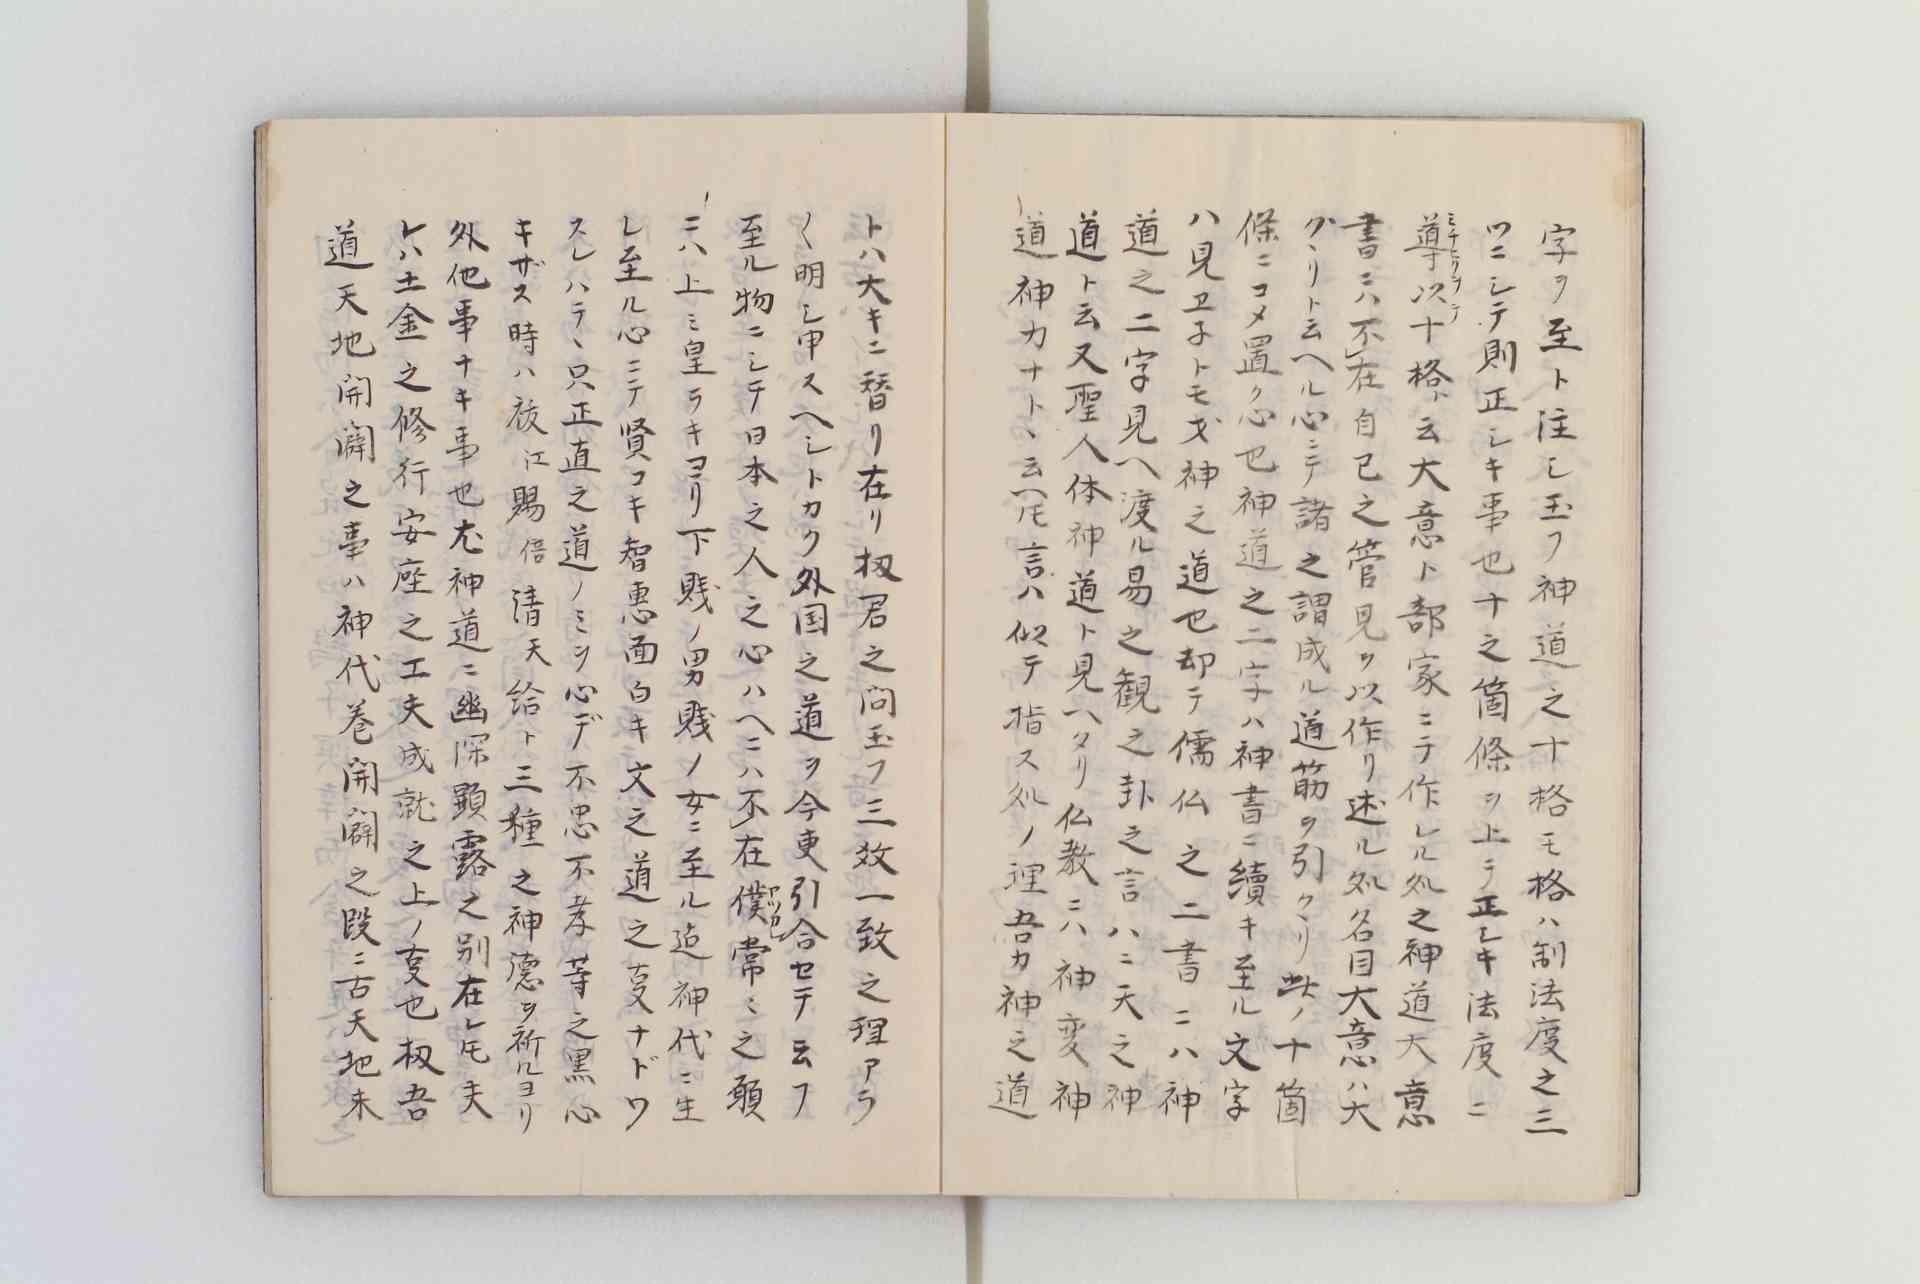 字ヲ至ト注シ玉フ神道之十格モ格ハ制法度之三
ツニシテ則正シキ事也十之箇條ヲ上テ正シキ法度ニ
導以十格ト云大意ト部家ニテ作レル処之神道大意
書ニハ不在自己之管見ヲ以作リ述ル処名目大意ハ大
グヽリト云ヘル心ニテ諸之謂成ル道筋ヲ引クヽリ此ノ十箇
條ニコメ置ク心也神道之二字ハ神書ニ續キ至ル文字
ハ見ヱ子トモ神之道也却テ儒仏之二書ニハ神
道之二字見ヘ渡ル易之観之卦之言ハニ天之神
道ト云又聖人体神道ト見ヘタリ仏教ニハ神変神
道神力ナトヽ云ヘ𪜈言ハ似テ指ス処ノ理吾カ神之道
トハ大キニ替リ在リ扨君之問玉フ三教一致之理アラ
〱明シ申スヘシトカク外国之道ヲ今更引合セテ云フ
至ル物ニシテ日本之人之心ハヘニハ不在僕常ニ之願
ニハ上ミ皇ラキヨリ下賎ノ男賎ノ女ニ至ル迄神代ニ生
レ至ル心ニテ賢コキ智恵面白キ文之道之叓ナドワ
スレハテヽ只正直之道ノミヲ心デ不忠不孝等之黒心
キザス時ハ祓江賜倍清天給ト三種之神徳ヲ祈ルヨリ
外他事ナキ事也尤神道ニ幽深顕露之別在レ𪜈夫
レハ土金之修行安座之工夫成就之上ノ叓也扨吾
道天地開闢之事ハ神代巻開闢之段ニ古天地未